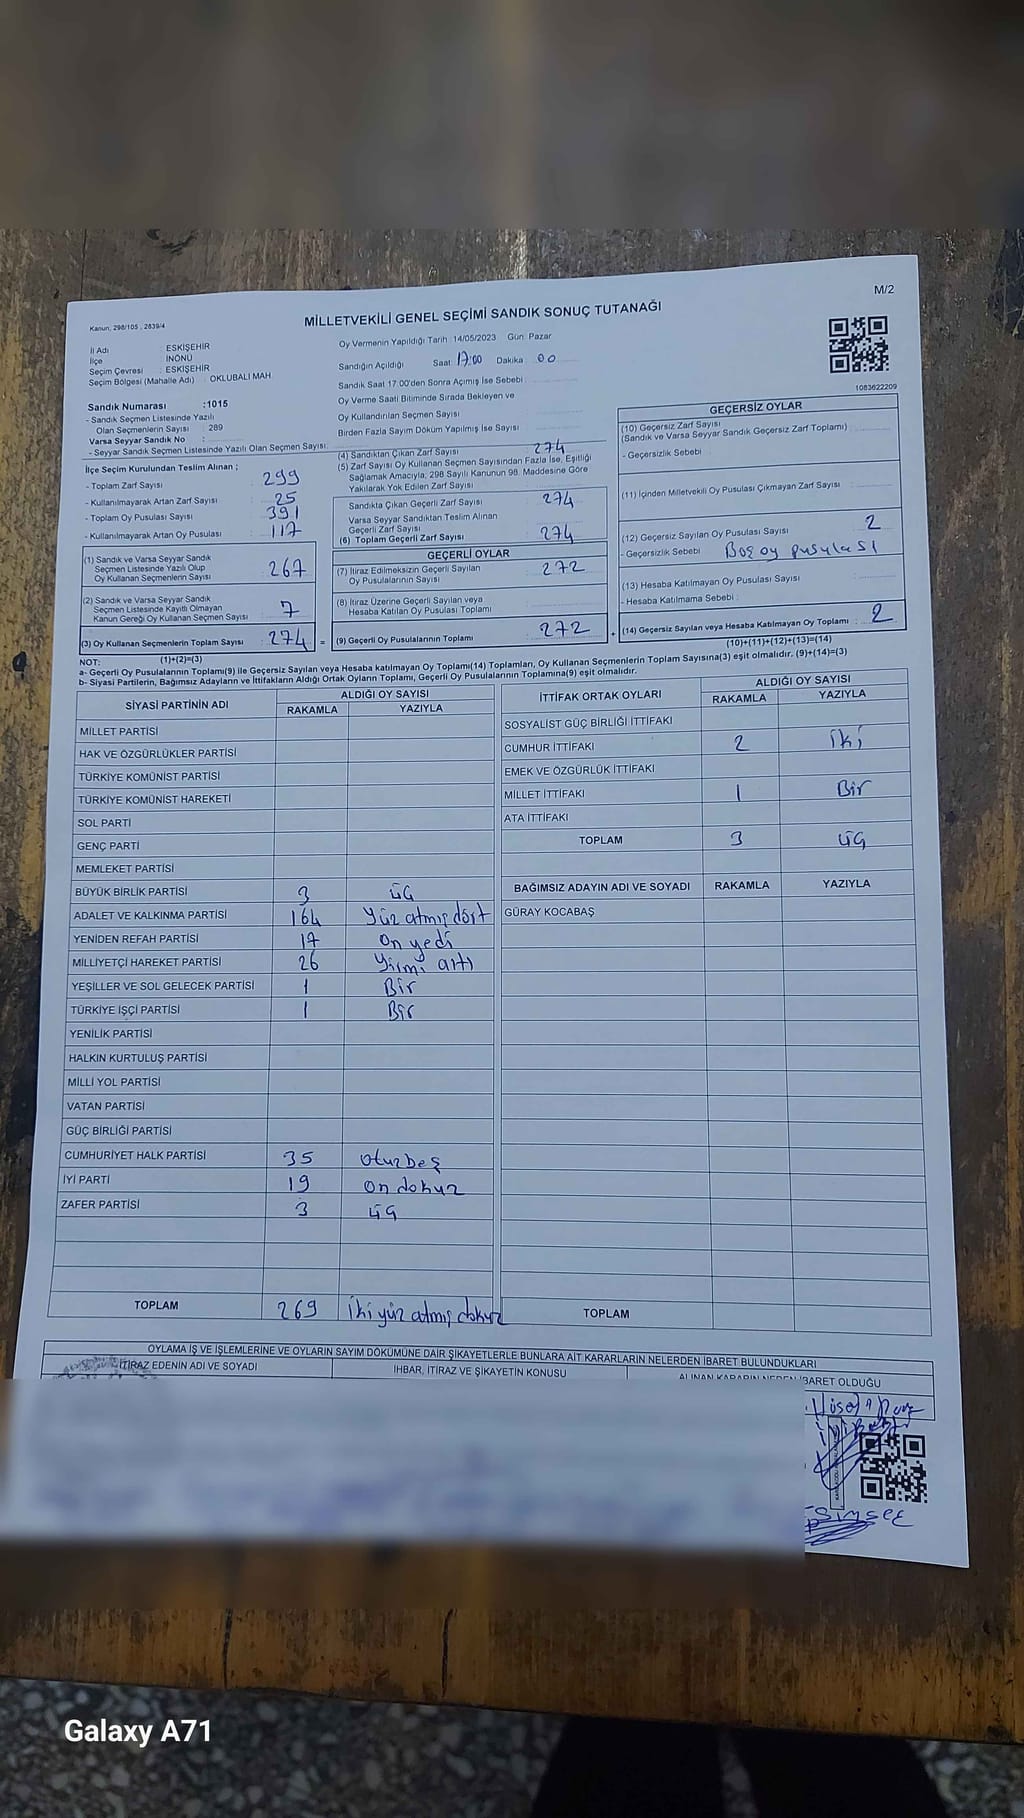 M/2
Kanun, 298/105 , 2839/4
MİLLETVEKİLİ GENEL SEÇİMİ SANDIK SONUÇ TUTANAĞI
İl Adı : ESKİŞEHİR
İlçe : İNÖNÜ
Seçim Çevresi : ESKİŞEHİR
Seçim Bölgesi (Mahalle Adı) : OKLUBALI MAH
Sandık Numarası :1015
- Sandık Seçmen Listesinde Yazılı
Olan Seçmenlerin Sayısı : 289
Varsa Seyyar Sandık No :
- Seyyar Sandık Seçmen Listesinde Yazılı Olan Seçmen Sayısı:
İlçe Seçim Kurulundan Teslim Alınan ;
- Toplam Zarf Sayısı : 299
- Kullanılmayarak Artan Zarf Sayısı : 25
- Toplam Oy Pusulası Sayısı : 391
- Kullanılmayarak Artan Oy Pusulası : 117
(1) Sandık ve Varsa Seyyar Sandık
Seçmen Listesinde Yazılı Olup
Oy Kullanan Seçmenlerin Sayısı 267
(2) Sandık ve Varsa Seyyar Sandık
Seçmen Listesinde Kayıtlı Olmayan
Kanun Gereği Oy Kullanan Seçmen Sayısı 7
(3) Oy Kullanan Seçmenlerin Toplam Sayısı 274 =
(1)+(2)=(3)
Oy Vermenin Yapıldığı Tarih :14/05/2023 Gün: Pazar
Sandığın Açıldığı Saat: 17:00 Dakika 00
Sandık Saat 17.00'den Sonra Açımış İse Sebebi :
Oy Verme Saati Bitiminde Sırada Bekleyen ve
Oy Kullandırılan Seçmen Sayısı :
Birden Fazla Sayım Döküm Yapılmış İse Sayısı :
(4) Sandıktan Çıkan Zarf Sayısı : 274
(5) Zarf Sayısı Oy Kullanan Seçmen Sayısından Fazla İse, Eşitliği
Sağlamak Amacıyla, 298 Sayılı Kanunun 98. Maddesine Göre
Yakılarak Yok Edilen Zarf Sayısı :
Sandıkta Çıkan Geçerli Zarf Sayısı : 274
Varsa Seyyar Sandıktan Teslim Alınan
Geçerli Zarf Sayısı :
(6) Toplam Geçerli Zarf Sayısı : 274
GEÇERLİ OYLAR
(7) İtiraz Edilmeksizin Geçerli Sayılan
Oy Pusulalarının Sayısı : 272
(8) İtiraz Üzerine Geçerli Sayılan veya
Hesaba Katılan Oy Pusulası Toplamı :
(9) Geçerli Oy Pusulalarının Toplamı : 272 +
1083622209
GEÇERSİZ OYLAR
(10) Geçersiz Zarf Sayısı
(Sandık ve Varsa Seyyar Sandık Geçersiz Zarf Toplamı) :
- Geçersizlik Sebebi :
(11) İçinden Milletvekili Oy Pusulası Çıkmayan Zarf Sayısı :
(12) Geçersiz Sayılan Oy Pusulası Sayısı : 2
- Geçersizlik Sebebi : Boş oy pusulası
(13) Hesaba Katılmayan Oy Pusulası Sayısı :
- Hesaba Katılmama Sebebi :
(14) Geçersiz Sayılan veya Hesaba Katılmayan Oy Toplamı : 2
(10)+(11)+(12)+(13)=(14)
NOT:
a- Geçerli Oy Pusulalarının Toplamı(9) ile Geçersiz Sayılan veya Hesaba katılmayan Oy Toplamı(14) Toplamları, Oy Kullanan Seçmenlerin Toplam Sayısına(3) eşit olmalıdır. (9)+(14)=(3)
b- Siyasi Partilerin, Bağımsız Adayların ve İttifakların Aldığı Ortak Oyların Toplamı, Geçerli Oy Pusulalarının Toplamına(9) eşit olmalıdır.
SİYASİ PARTİNİN ADI ALDIĞI OY SAYISI
RAKAMLA YAZIYLA
MİLLET PARTİSİ
HAK VE ÖZGÜRLÜKLER PARTİSİ
TÜRKİYE KOMÜNİST PARTİSİ
TÜRKİYE KOMÜNİST HAREKETİ
SOL PARTİ
GENÇ PARTİ
MEMLEKET PARTİSİ
BÜYÜK BİRLİK PARTİSİ 3 üç
ADALET VE KALKINMA PARTİSİ 164 Yüz atmış dört
YENİDEN REFAH PARTİSİ 17 On yedi
MİLLİYETÇİ HAREKET PARTİSİ 26 Yirmi altı
YEŞİLLER VE SOL GELECEK PARTİSİ 1 Bir
TÜRKİYE İŞÇİ PARTİSİ 1 Bir
YENİLİK PARTİSİ
HALKIN KURTULUŞ PARTİSİ
MİLLİ YOL PARTİSİ
VATAN PARTİSİ
GÜÇ BİRLİĞİ PARTİSİ
CUMHURİYET HALK PARTİSİ 35 Otuzbeş
İYİ PARTİ 19 On dokuz
ZAFER PARTİSİ 3 üç
TOPLAM 269 İki yüz atmış dokuz
İTTİFAK ORTAK OYLARI ALDIĞI OY SAYISI
RAKAMLA YAZIYLA
SOSYALİST GÜÇ BİRLİĞİ İTTİFAKI
CUMHUR İTTİFAKI 2 İki
EMEK VE ÖZGÜRLÜK İTTİFAKI
MİLLET İTTİFAKI 1 Bir
ATA İTTİFAKI
TOPLAM 3 üç
BAĞIMSIZ ADAYIN ADI VE SOYADI RAKAMLA YAZIYLA
GÜRAY KOCABAŞ
TOPLAM
OYLAMA İŞ VE İŞLEMLERİNE VE OYLARIN SAYIM DÖKÜMÜNE DAİR ŞİKAYETLERLE BUNLARA AİT KARARLARIN NELERDEN İBARET BULUNDUKLARI
İTİRAZ EDENİN ADI VE SOYADI İHBAR, İTİRAZ VE ŞİKAYETİN KONUSU ALINAN KARARIN NEDEN İBARET OLDUĞU
Galaxy A71